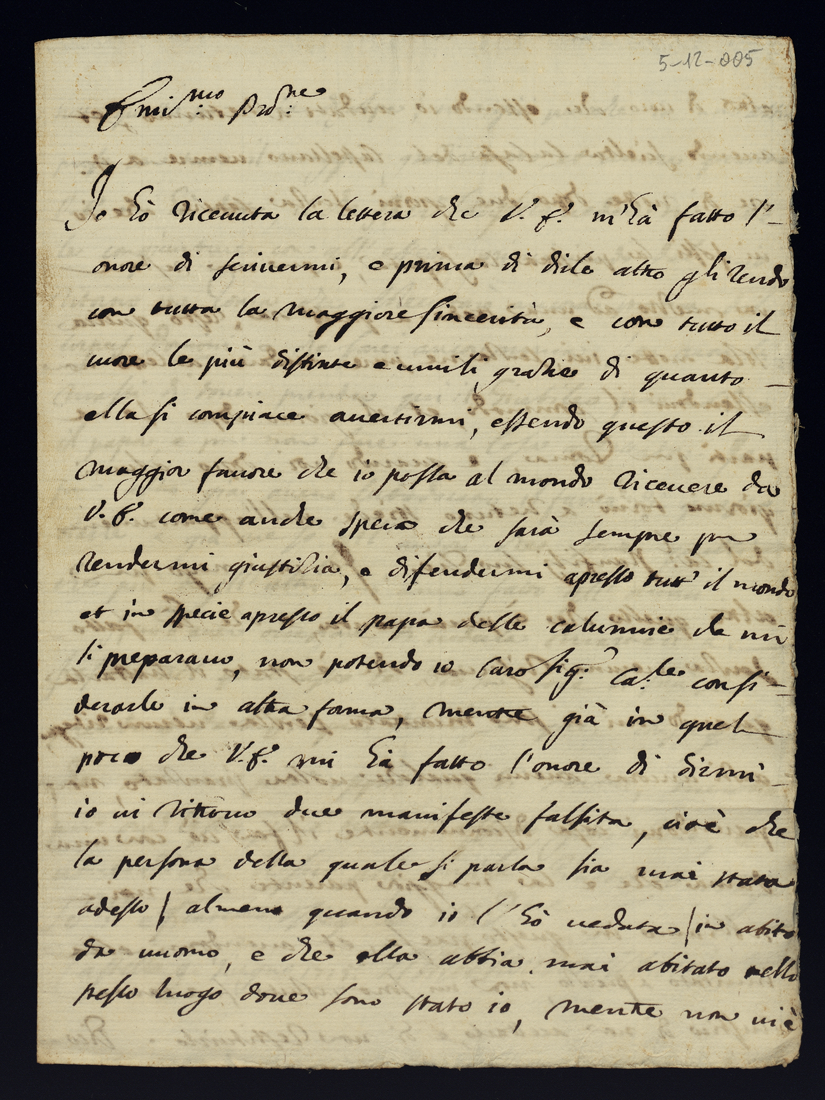 5-12-005
Em:mo Prõ:ne
Io hò riceuuta la lettera che V. E. m'hà fatto l'-
onore di scriuermi, e prima di dirle altro gli rendo
con tutta la maggiore sincerità, e con tutto il
cuore le più distinte e umili grazie di quanto
ella si compiace auertirmi, essendo questo il
maggior fauore che io possa al mondo riceuere da
V. E. come anche spera che sarà sempre per
rendermi giustizia, e difendermi apresso tutt' il mondo
et in specie apresso il papa delle calunnie che mi
si preparano, non potendo io Caro Sig.r Ca:le consi-
derarle in altra forma, mentre già in quel
poco che V. E. mi hà fatto l'onore di dirmi
io ui ritrouo due manifeste falsità, cioè che
la persona della quale si parla sia mai stata
adesso / almeno quando io l'hò ueduta / in abito
da uuomo, e che ella abbia mai abitato nello
stesso luogo doue sono stato io, mentre non ui è